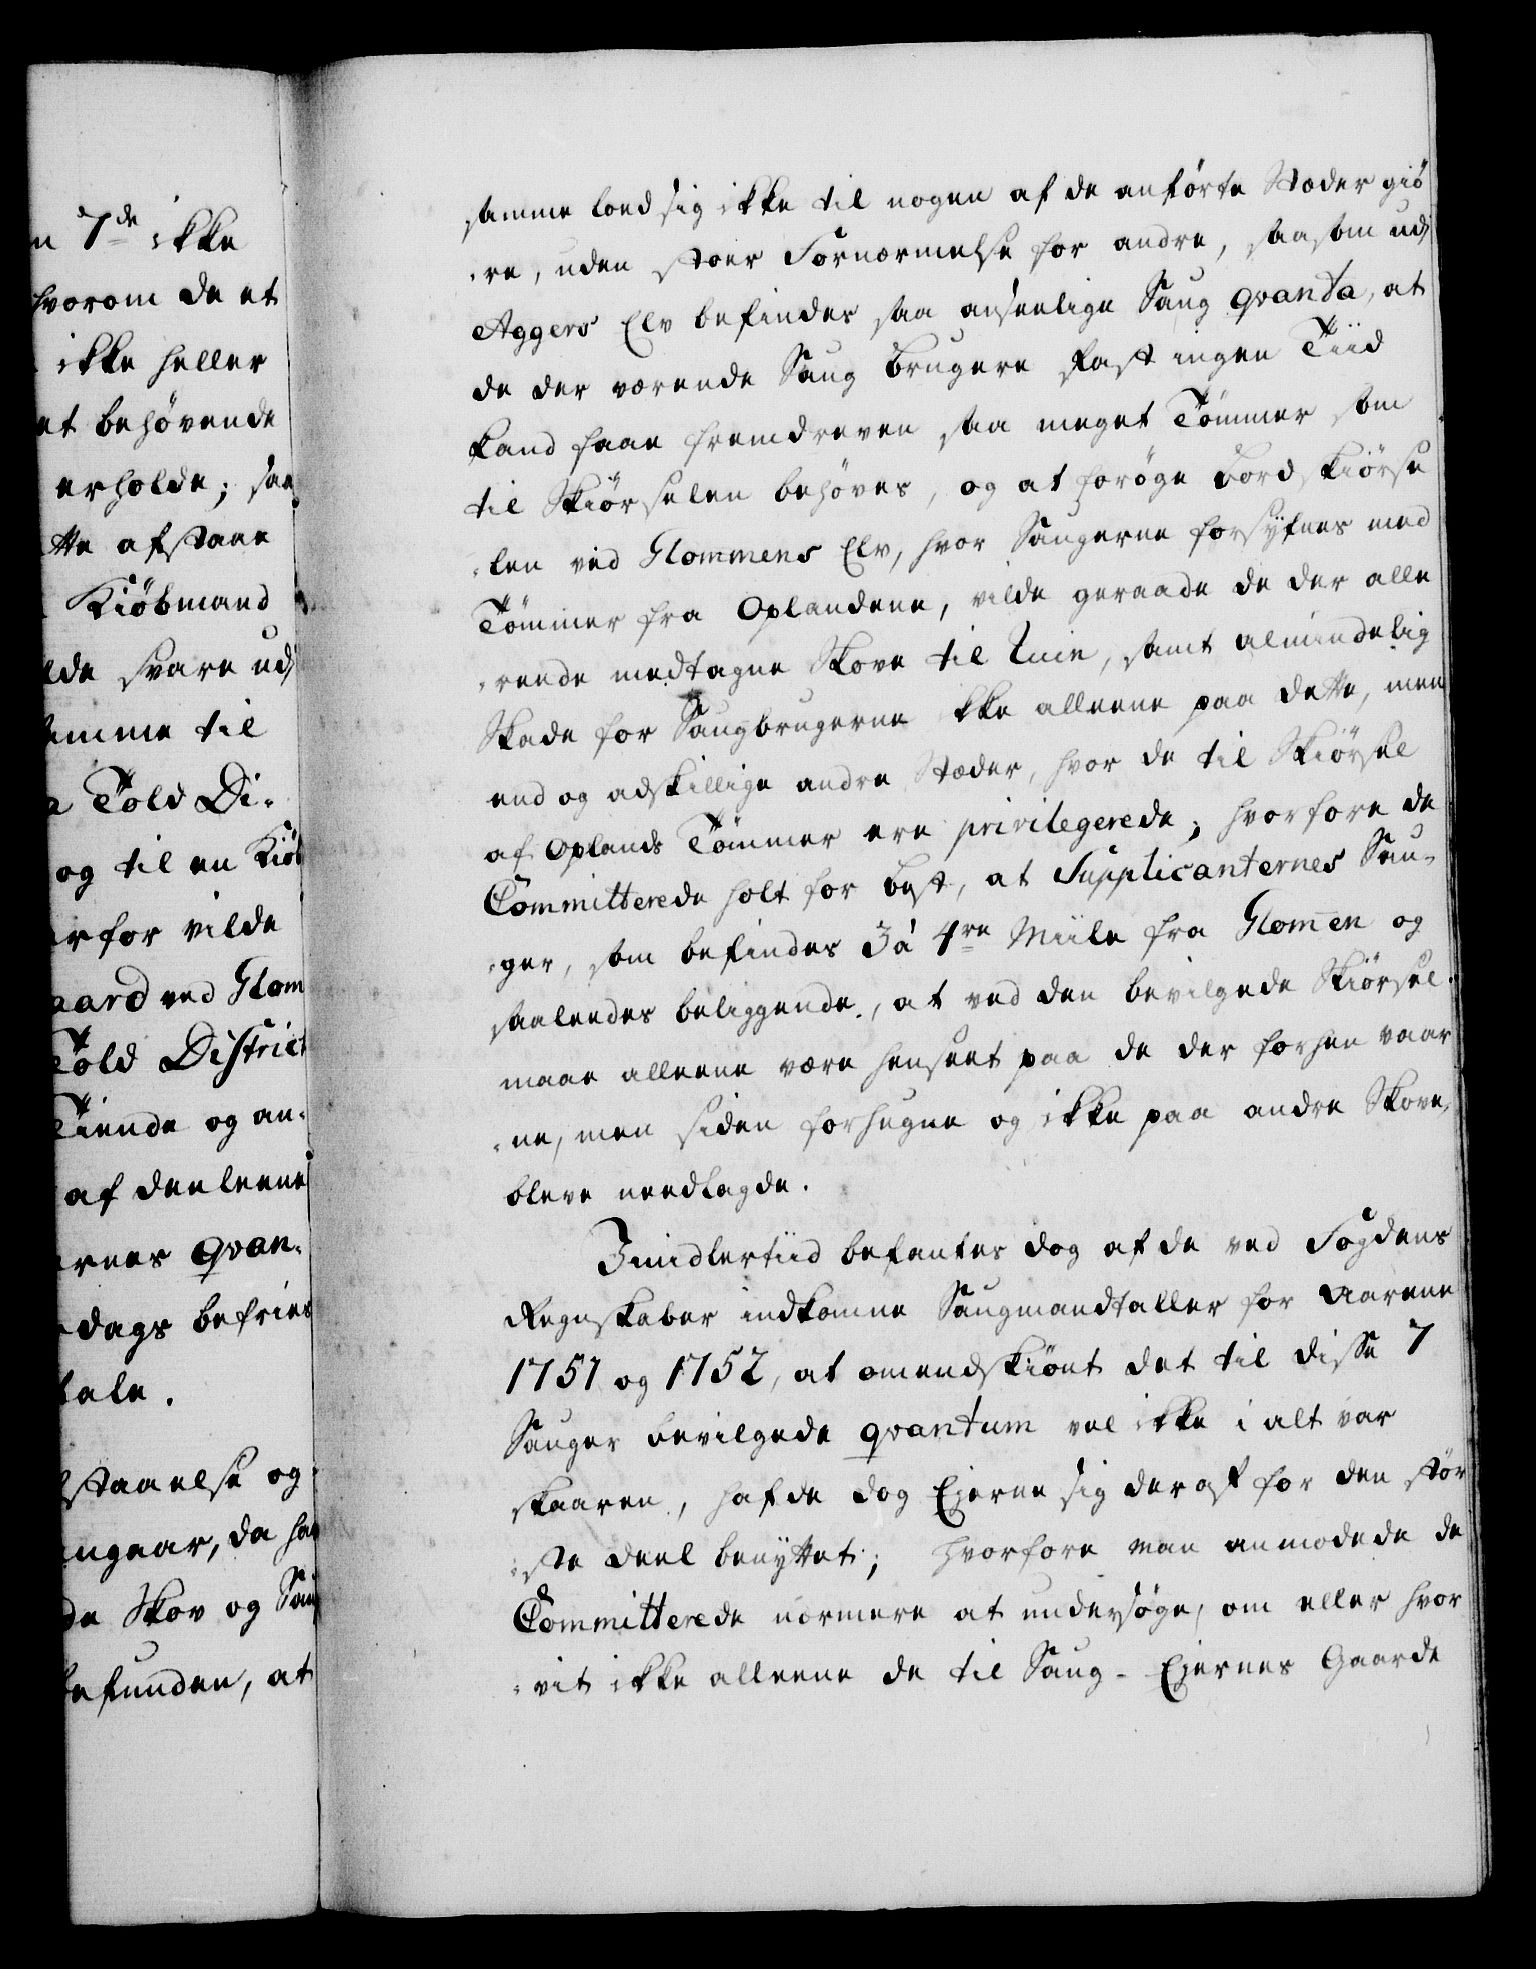 n 7de ikke
hvorom de et
ikke heller
et behøvende
erholde; saa
tte afstaae
Kiøbmand
lde svare udj
amme til
a Told Di-
og til en Kiøb
erfor vilde
aard ved Glom
Told District
Tiende og an-
af deeleene
ernes qvan-
dags befries
tale.
staaelse og
angaar, da ha
de Skov og Sau
befunden, at
samme loed sig ikke til nogen af de anførte Stæder giø
-re, uden stoer Fornærmelse for andre, saasom udj
Aggers Elv befindes saa anseelige Saug qvanta, at
de der værende Saug Brugere fast ingen Tiid
kand faae fremdreven saa meget Tømmer som
til Skiørselen behøves, og at forøge Bord skiørse
-len ved Glommens Elv, hvor Saugerne forsÿnes med
Tømmer fra Oplandene, vilde geraade de der alle
-reede medtagne Skove til Ruin, samt almindelig
Skade for Saugbrugerne ikke alleene paa dette, men
end og adskillige andre Stæder, hvor de til Skiørsel
af Oplands Tømmer ere privilegerede; hvorfore de
Committerede holt for best, at Supplicanternes Sau-
-ger, som befindes 3 á 4re Miile fra Glomen og
saaleedes beliggende, at ved den bevilgede Skiørsel
maae alleene være henseet paa de der forhen vaar
-ne, men siden forhugne og ikke paa andre Skove,
bleve needlagde.
Imidlertiid befantes dog af de ved Fogdens
Regnskaber indkomne Saugmandtaller for Aarene
1751 og 1752, at omendskiønt det til disse 7
Sauger bevilgede qvantum vel ikke i alt var
skaaren, hafde dog Ejerne sig deraf for den stør
-ste deel benyttet; hvorfore man anmodede de
Committerede nærmere at undersøge, om eller hvor
-vit ikke alleene de til Saug-Ejernes Gaarde